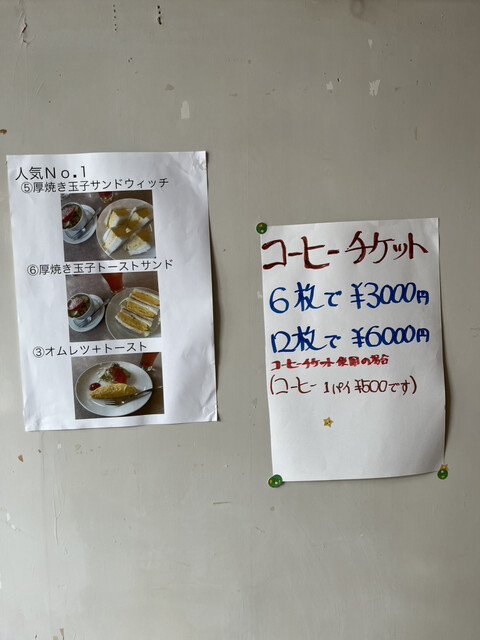 人気No.1
⑤厚焼き玉子サンドウィッチ
⑥厚焼き玉子トーストサンド
③オムレツ+トースト
コーヒーチケット
6枚で ¥3000円
12枚で ¥6000円
コーヒーチケット
(コーヒー 1パイ ¥500です)